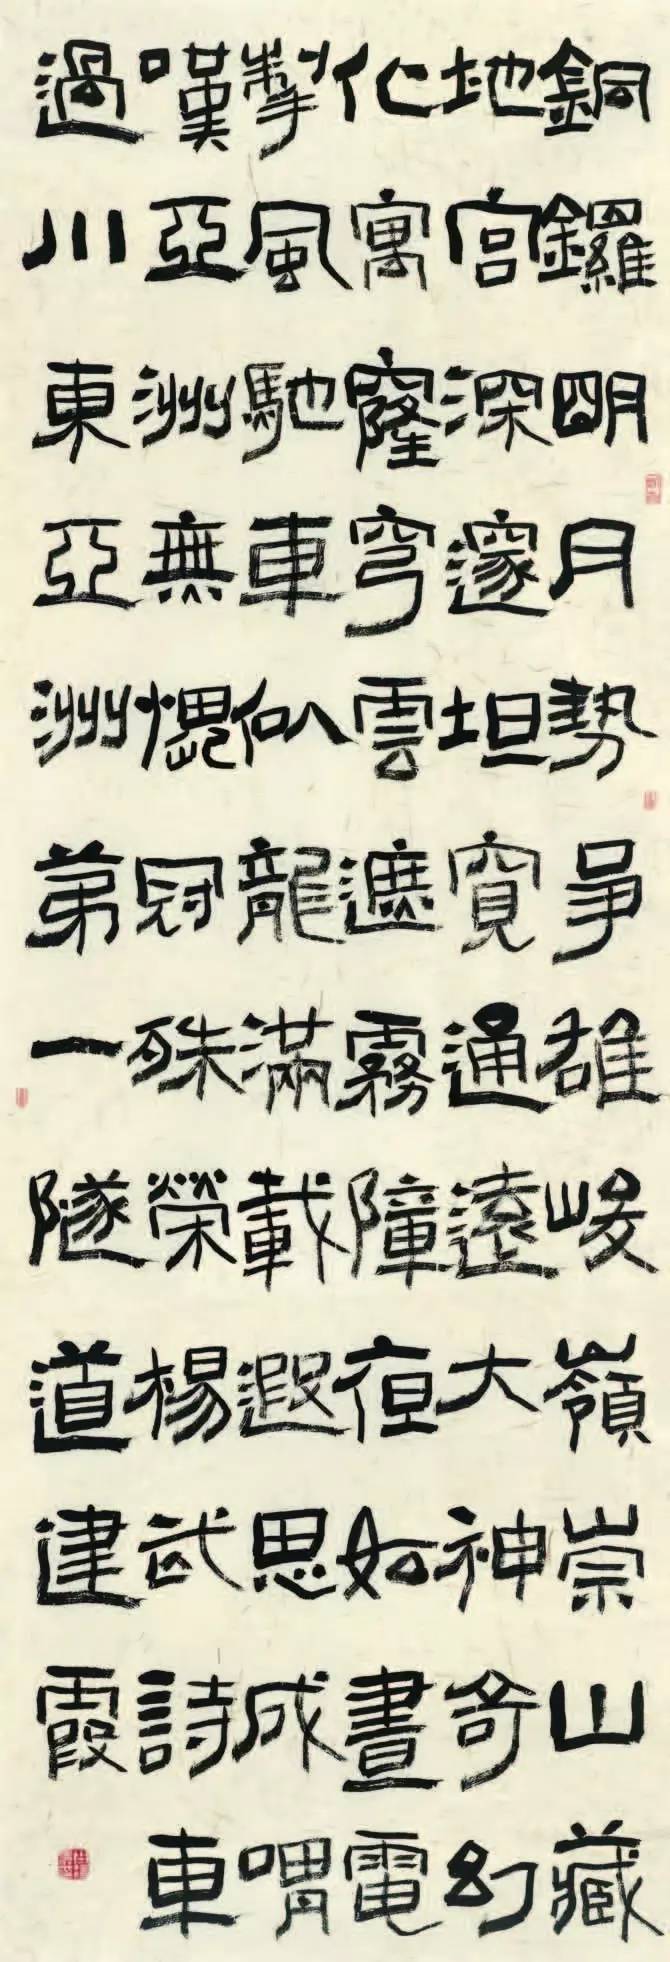 銅鑼明月勢爭雄峻嶺崇山藏
地宮深邃坦寬通遠大神奇幻
化寓窿穹雲遮霧障夜如晝電
掣風馳車似龍滿載遐思成喟
嘆亞洲無愧冠殊榮楊武詩車
過川東亞洲第一隧道建霞